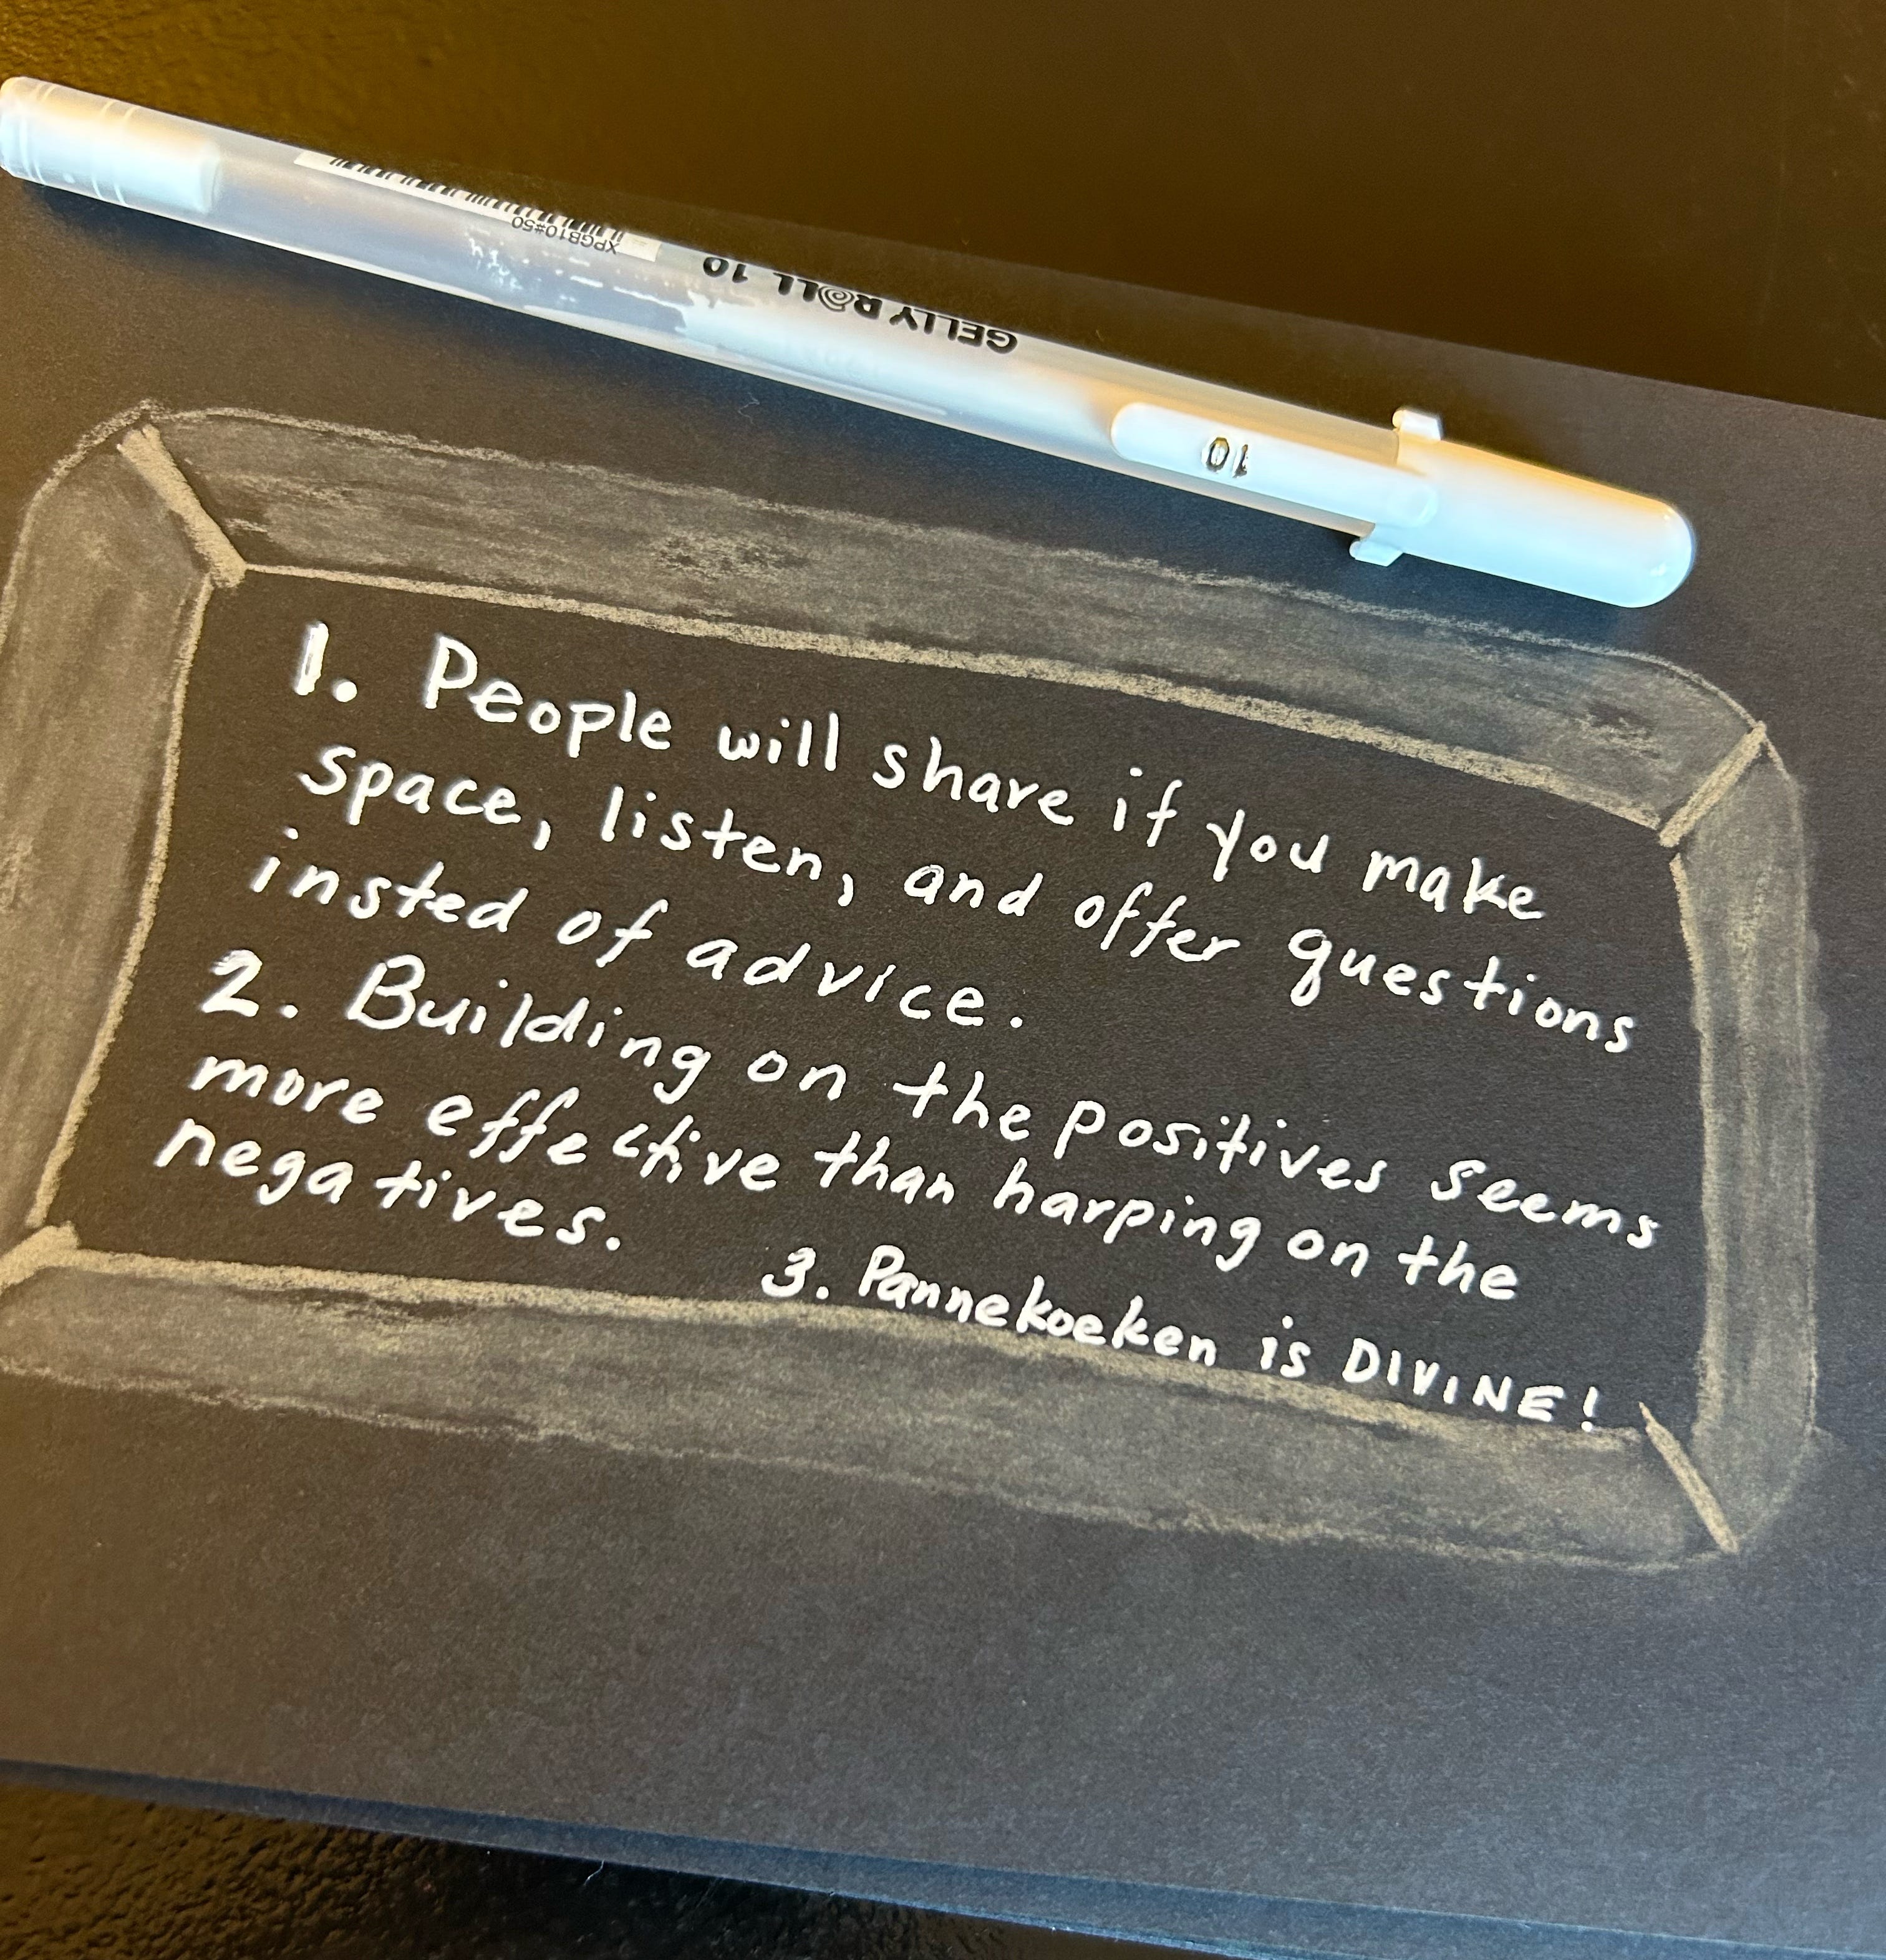 XPGB10#50
GELLY ROLL 10
10
1. People will share if you make
space, listen, and offer questions
insted of advice.
2. Building on the positives seems
more effective than harping on the
negatives.
3. Pannekoeken is DIVINE!